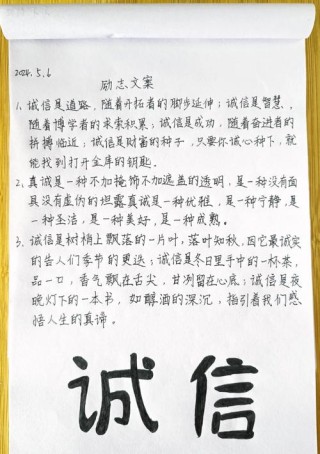 2024.5.6
励志文案
1、诚信是道路，随着开拓者的脚步延伸；诚信是智慧，
随着博学者的求索积累；诚信是成功，随着奋进者的
拼搏临近；诚信是财富的种子，只要你诚心种下，就
能找到打开金库的钥匙。
2、真诚是一种不加掩饰不加遮盖的透明，是一种没有面
具没有虚伪的坦露真诚是一种优雅，是一种宁静，是
一种圣洁，是一种美好，是一种成熟。
3、诚信是树梢上飘落的一片叶，落叶知秋，因它最诚实
的告人们季节的更迭；诚信是冬日里手中的一杯茶，
品一口，香气飘在舌尖，甘冽留在心底；诚信是夜
晚灯下的一本书，如醇酒的深沉，指引着我们感
悟人生的真谛。
诚信